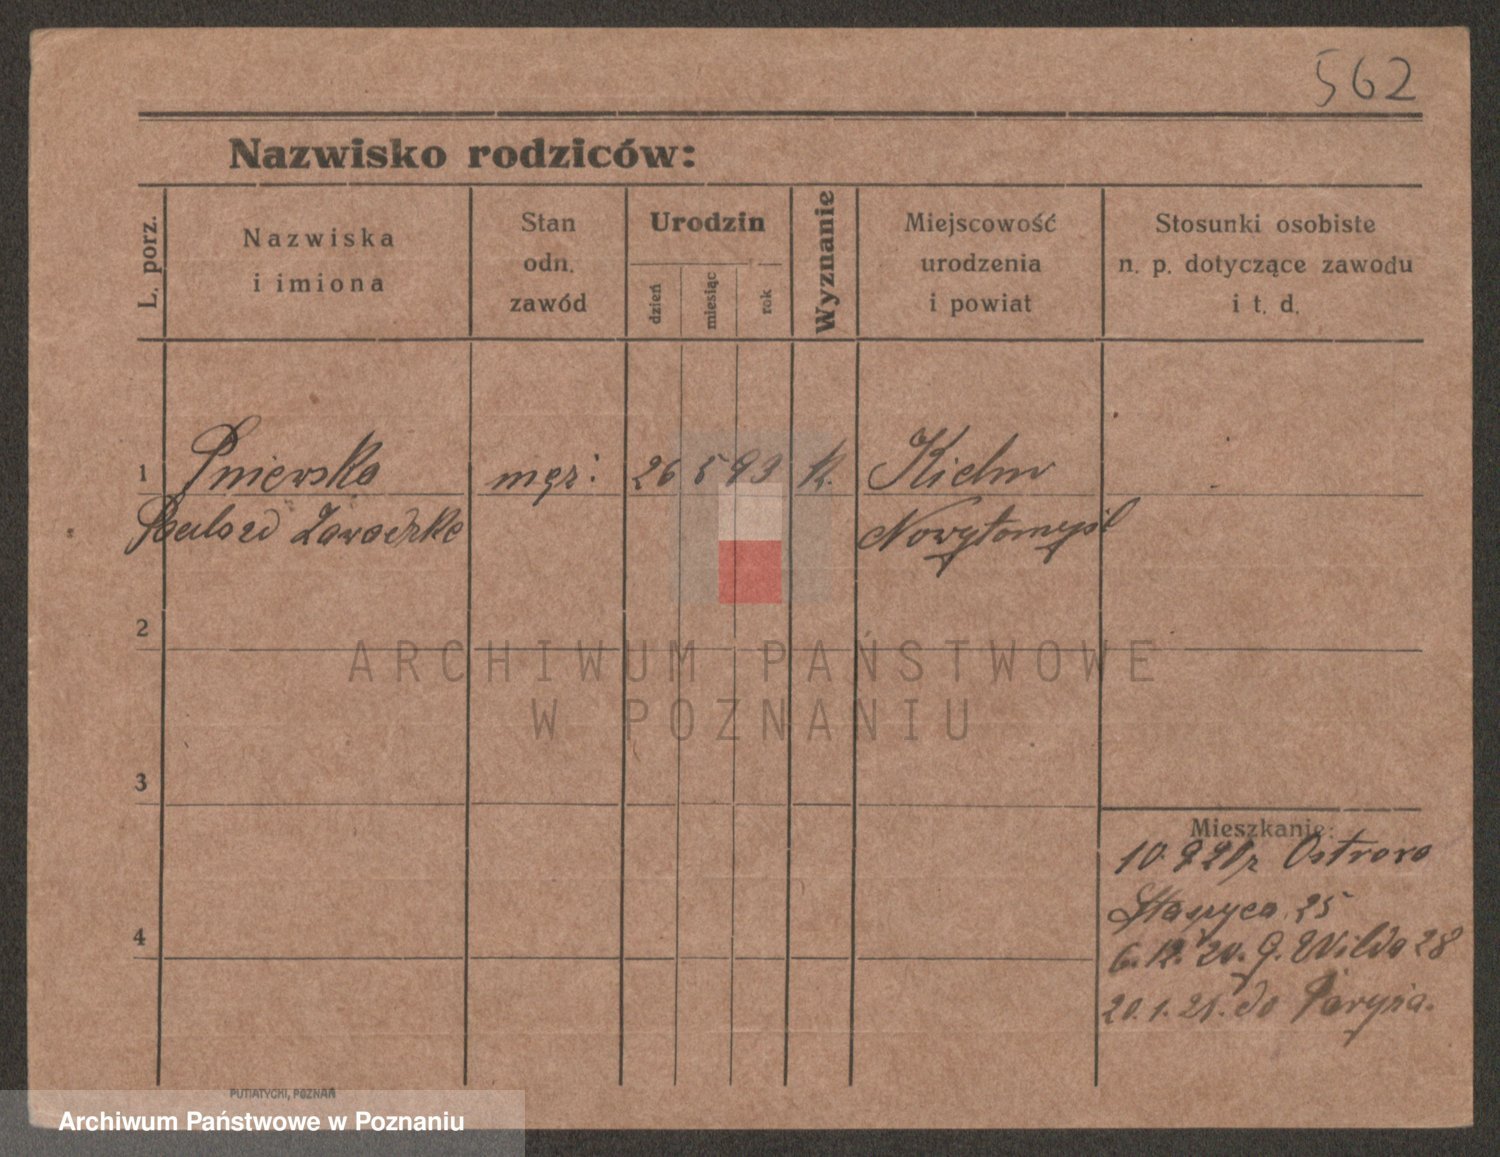 562
Nazwisko rodziców:
L. porz.
Nazwiska
i imiona
Stan
odn.
zawód
Urodzin
dzień
miesiąc
rok
Wyznanie
Miejscowość
urodzenia
i powiat
Stosunki osobiste
n. p. dotyczące zawodu
i t. d.
1 Pniewska męż: 26 5 93 K.
Zawadzka
Nowytomyśl
2
ARCHIWUM PAŃSTWOWE
W POZNANIU
3
Mieszkanie:
10 9 20 z Ostrowo
25
4
6. 12. 20. G. Wilda 28
20. 1. 21. do Paryża.
PUTIATYCKI, POZNAŃ
Archiwum Państwowe w Poznaniu